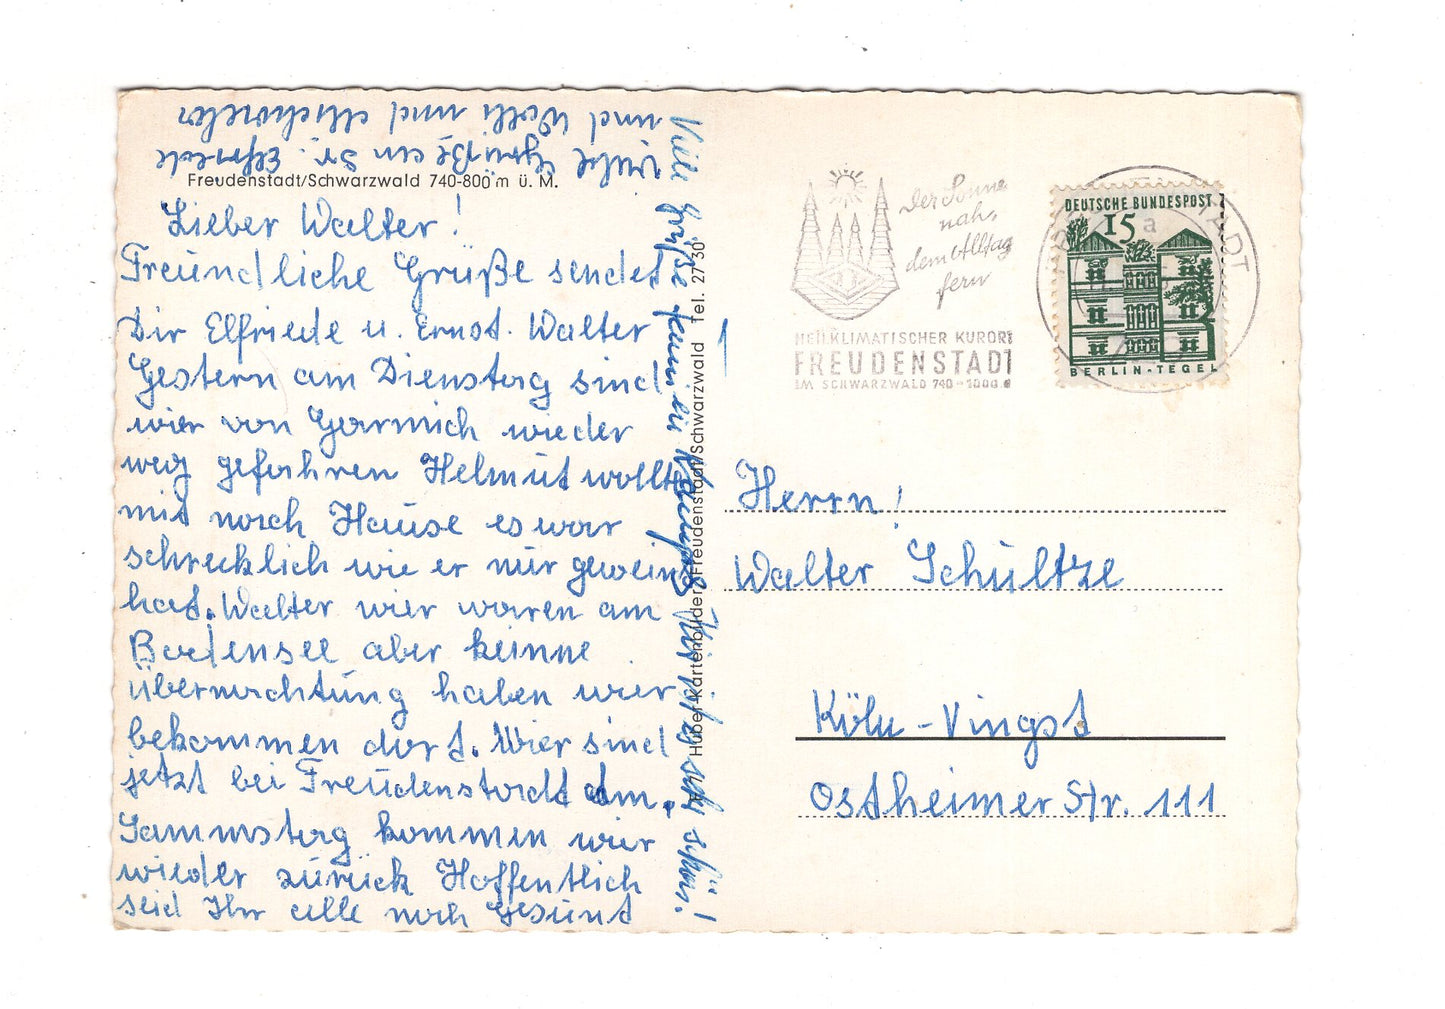 Freudenstadt/Schwarzwald 740-800 m ü. M.
Lieber Walter!
Freundliche Grüße sendet
Dir Elfriede u. Ernst. Walter
Gestern am Dienstag sind
wier von Garmich wieder
weg gefahren Helmut wollte
mit nach Hause es war
schrecklich wie er nur geweint
hat. Walter wier waren am
Bodensee aber keinne
übernachtung haben wier
bekommen dort. Wier sind
jetzt bei Freudenstadt Am
Sammstag kommen wier
wieder zurück Hoffentlich
seid Ihr alle noch Gesunt
viele Grüße an Fr. Elfriede
und Walli und Michaeler
Viele Grüße Familie Hier ist es sehr schön!
Huber-Kartenbilder, Freudenstadt/Schwarzwald Tel. 27 30
Der Sonne
nah,
dem Alltag
fern
HEILKLIMATISCHER KURORT
FREUDENSTADT
IM SCHWARZWALD 740-1000 m
DEUTSCHE BUNDESPOST
15
a
BERLIN-TEGEL
Herrn!
Walter Schultze
Köln-Vingst
Ostheimer Str. 111